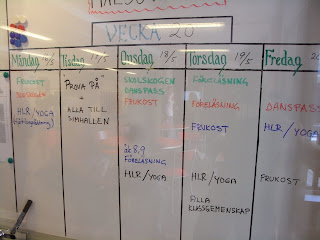 VECKA 20
Måndag 16/5
FRUKOST
HLR/YOGA
Tisdag 17/5
"PROVA PÅ"
+
ALLA TILL
SIMHALLEN
Onsdag 18/5
SKOLSKOGEN
DANSPASS
FRUKOST
åk 8,9
FÖRELÄSNING
HLR/YOGA
Torsdag 19/5
FÖRELÄSNING
FÖRELÄSNING
FRUKOST
HLR/YOGA
ALLA
KLASSGEMENSKAP
Fredag 20
DANSPASS
HLR/YOGA
FRUKOST